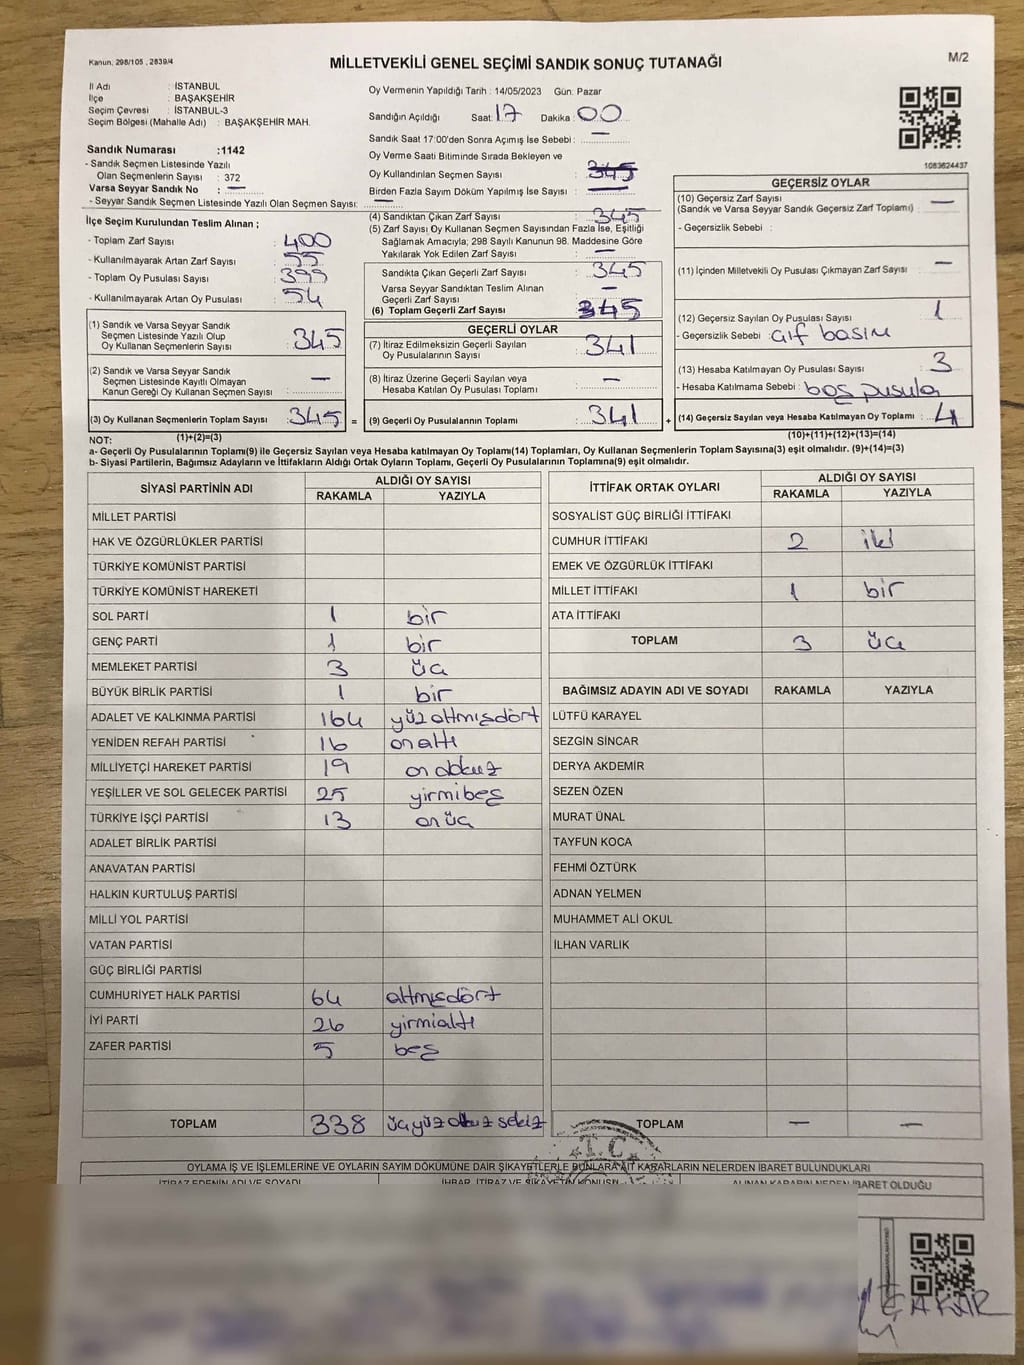 Kanun, 298/105 , 2839/4
MİLLETVEKİLİ GENEL SEÇİMİ SANDIK SONUÇ TUTANAĞI
M/2
İl Adı : İSTANBUL
İlçe : BAŞAKŞEHİR
Seçim Çevresi : İSTANBUL-3
Seçim Bölgesi (Mahalle Adı) : BAŞAKŞEHİR MAH.
Sandık Numarası :1142
- Sandık Seçmen Listesinde Yazılı
Olan Seçmenlerin Sayısı : 372
Varsa Seyyar Sandık No : —
- Seyyar Sandık Seçmen Listesinde Yazılı Olan Seçmen Sayısı: —
Oy Vermenin Yapıldığı Tarih : 14/05/2023 Gün: Pazar
Sandığın Açıldığı Saat: 17 Dakika : 00
Sandık Saat 17:00'den Sonra Açımış İse Sebebi : —
Oy Verme Saati Bitiminde Sırada Bekleyen ve
Oy Kullandırılan Seçmen Sayısı : 345
Birden Fazla Sayım Döküm Yapılmış İse Sayısı : —
1083624437
İlçe Seçim Kurulundan Teslim Alınan ;
- Toplam Zarf Sayısı : 400
- Kullanılmayarak Artan Zarf Sayısı : 55
- Toplam Oy Pusulası Sayısı : 399
- Kullanılmayarak Artan Oy Pusulası : 54
(1) Sandık ve Varsa Seyyar Sandık
Seçmen Listesinde Yazılı Olup
Oy Kullanan Seçmenlerin Sayısı : 345
(2) Sandık ve Varsa Seyyar Sandık
Seçmen Listesinde Kayıtlı Olmayan
Kanun Gereği Oy Kullanan Seçmen Sayısı : —
(3) Oy Kullanan Seçmenlerin Toplam Sayısı : 345 =
(1)+(2)=(3)
(4) Sandıktan Çıkan Zarf Sayısı : 345
(5) Zarf Sayısı Oy Kullanan Seçmen Sayısından Fazla İse, Eşitliği
Sağlamak Amacıyla; 298 Sayılı Kanunun 98. Maddesine Göre
Yakılarak Yok Edilen Zarf Sayısı : —
Sandıkta Çıkan Geçerli Zarf Sayısı : 345
Varsa Seyyar Sandıktan Teslim Alınan
Geçerli Zarf Sayısı : —
(6) Toplam Geçerli Zarf Sayısı : 345
GEÇERLİ OYLAR
(7) İtiraz Edilmeksizin Geçerli Sayılan
Oy Pusulalarının Sayısı : 341
(8) İtiraz Üzerine Geçerli Sayılan veya
Hesaba Katılan Oy Pusulası Toplamı : —
(9) Geçerli Oy Pusulalarının Toplamı : 341 +
GEÇERSİZ OYLAR
(10) Geçersiz Zarf Sayısı
(Sandık ve Varsa Seyyar Sandık Geçersiz Zarf Toplamı) : —
- Geçersizlik Sebebi :
(11) İçinden Milletvekili Oy Pusulası Çıkmayan Zarf Sayısı : —
(12) Geçersiz Sayılan Oy Pusulası Sayısı : 1
- Geçersizlik Sebebi : çift basım
(13) Hesaba Katılmayan Oy Pusulası Sayısı : 3
- Hesaba Katılmama Sebebi : boş pusula
(14) Geçersiz Sayılan veya Hesaba Katılmayan Oy Toplamı : 4
(10)+(11)+(12)+(13)=(14)
NOT:
a- Geçerli Oy Pusulalarının Toplamı(9) ile Geçersiz Sayılan veya Hesaba katılmayan Oy Toplamı(14) Toplamları, Oy Kullanan Seçmenlerin Toplam Sayısına(3) eşit olmalıdır. (9)+(14)=(3)
b- Siyasi Partilerin, Bağımsız Adayların ve İttifakların Aldığı Ortak Oyların Toplamı, Geçerli Oy Pusulalarının Toplamına(9) eşit olmalıdır.
SİYASİ PARTİNİN ADI ALDIĞI OY SAYISI
RAKAMLA YAZIYLA
MİLLET PARTİSİ
HAK VE ÖZGÜRLÜKLER PARTİSİ
TÜRKİYE KOMÜNİST PARTİSİ
TÜRKİYE KOMÜNİST HAREKETİ
SOL PARTİ 1 bir
GENÇ PARTİ 1 bir
MEMLEKET PARTİSİ 3 üç
BÜYÜK BİRLİK PARTİSİ 1 bir
ADALET VE KALKINMA PARTİSİ 164 yüzaltmışdört
YENİDEN REFAH PARTİSİ 16 onaltı
MİLLİYETÇİ HAREKET PARTİSİ 19 ondokuz
YEŞİLLER VE SOL GELECEK PARTİSİ 25 yirmibeş
TÜRKİYE İŞÇİ PARTİSİ 13 onüç
ADALET BİRLİK PARTİSİ
ANAVATAN PARTİSİ
HALKIN KURTULUŞ PARTİSİ
MİLLİ YOL PARTİSİ
VATAN PARTİSİ
GÜÇ BİRLİĞİ PARTİSİ
CUMHURİYET HALK PARTİSİ 64 altmışdört
İYİ PARTİ 26 yirmialtı
ZAFER PARTİSİ 5 beş
TOPLAM 338 üçyüzotuzsekiz
İTTİFAK ORTAK OYLARI ALDIĞI OY SAYISI
RAKAMLA YAZIYLA
SOSYALİST GÜÇ BİRLİĞİ İTTİFAKI
CUMHUR İTTİFAKI 2 iki
EMEK VE ÖZGÜRLÜK İTTİFAKI
MİLLET İTTİFAKI 1 bir
ATA İTTİFAKI
TOPLAM 3 üç
BAĞIMSIZ ADAYIN ADI VE SOYADI RAKAMLA YAZIYLA
LÜTFÜ KARAYEL
SEZGİN SİNCAR
DERYA AKDEMİR
SEZEN ÖZEN
MURAT ÜNAL
TAYFUN KOCA
FEHMİ ÖZTÜRK
ADNAN YELMEN
MUHAMMET ALİ OKUL
İLHAN VARLIK
TOPLAM — —
T.C.
OYLAMA İŞ VE İŞLEMLERİNE VE OYLARIN SAYIM DÖKÜMÜNE DAİR ŞİKAYETLERLE BUNLARA AİT KARARLARIN NELERDEN İBARET BULUNDUKLARI
İTİRAZ EDENİN ADI VE SOYADI İHBAR, İTİRAZ VE ŞİKAYETİN KONUSU ALINAN KARARIN NEDEN İBARET OLDUĞU